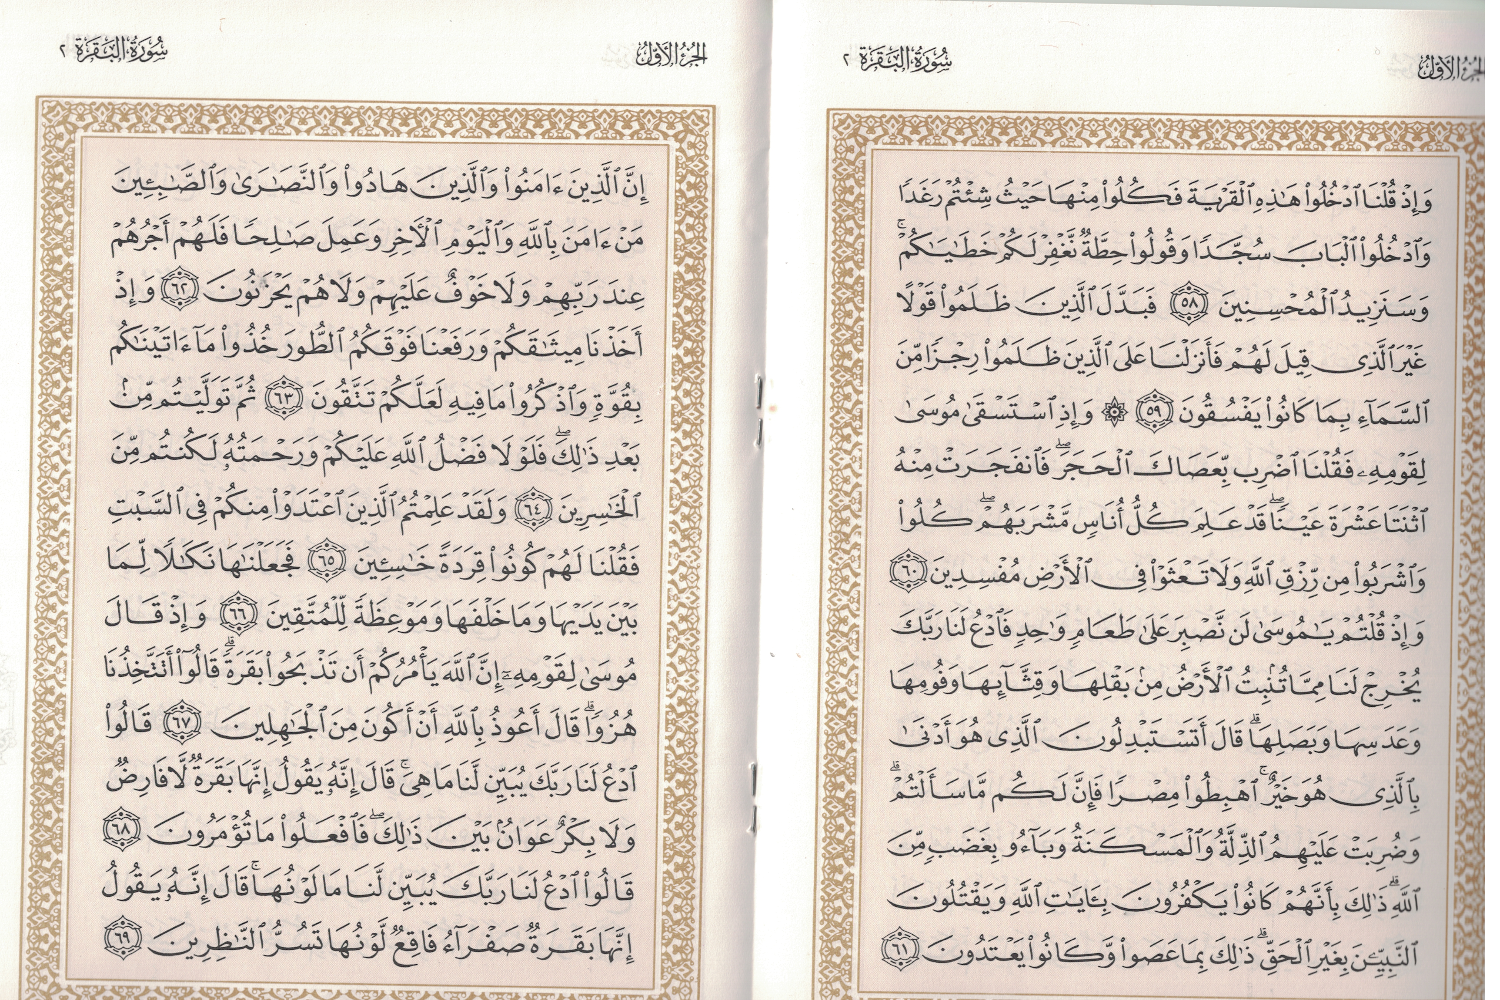 الجزء الأول
سورة البقرة ٢
وَإِذْ قُلْنَا ٱدْخُلُوا۟ هَٰذِهِ ٱلْقَرْيَةَ فَكُلُوا۟ مِنْهَا حَيْثُ شِئْتُمْ رَغَدًا
وَٱدْخُلُوا۟ ٱلْبَابَ سُجَّدًا وَقُولُوا۟ حِطَّةٌ نَّغْفِرْ لَكُمْ خَطَٰيَٰكُمْ ۚ
وَسَنَزِيدُ ٱلْمُحْسِنِينَ ٥٨ فَبَدَّلَ ٱلَّذِينَ ظَلَمُوا۟ قَوْلًا
غَيْرَ ٱلَّذِى قِيلَ لَهُمْ فَأَنزَلْنَا عَلَى ٱلَّذِينَ ظَلَمُوا۟ رِجْزًا مِّنَ
ٱلسَّمَآءِ بِمَا كَانُوا۟ يَفْسُقُونَ ٥٩ ۞ وَإِذِ ٱسْتَسْقَىٰ مُوسَىٰ
لِقَوْمِهِۦ فَقُلْنَا ٱضْرِب بِّعَصَاكَ ٱلْحَجَرَ ۖ فَٱنفَجَرَتْ مِنْهُ
ٱثْنَتَا عَشْرَةَ عَيْنًا ۖ قَدْ عَلِمَ كُلُّ أُنَاسٍ مَّشْرَبَهُمْ ۖ كُلُوا۟
وَٱشْرَبُوا۟ مِن رِّزْقِ ٱللَّهِ وَلَا تَعْثَوْا۟ فِى ٱلْأَرْضِ مُفْسِدِينَ ٦٠
وَإِذْ قُلْتُمْ يَٰمُوسَىٰ لَن نَّصْبِرَ عَلَىٰ طَعَامٍ وَٰحِدٍ فَٱدْعُ لَنَا رَبَّكَ
يُخْرِجْ لَنَا مِمَّا تُنۢبِتُ ٱلْأَرْضُ مِنۢ بَقْلِهَا وَقِثَّآئِهَا وَفُومِهَا
وَعَدَسِهَا وَبَصَلِهَا ۖ قَالَ أَتَسْتَبْدِلُونَ ٱلَّذِى هُوَ أَدْنَىٰ
بِٱلَّذِى هُوَ خَيْرٌ ۚ ٱهْبِطُوا۟ مِصْرًا فَإِنَّ لَكُم مَّا سَأَلْتُمْ ۗ
وَضُرِبَتْ عَلَيْهِمُ ٱلذِّلَّةُ وَٱلْمَسْكَنَةُ وَبَآءُو بِغَضَبٍ مِّنَ
ٱللَّهِ ۗ ذَٰلِكَ بِأَنَّهُمْ كَانُوا۟ يَكْفُرُونَ بِـَٔايَٰتِ ٱللَّهِ وَيَقْتُلُونَ
ٱلنَّبِيِّـۧنَ بِغَيْرِ ٱلْحَقِّ ۗ ذَٰلِكَ بِمَا عَصَوا۟ وَّكَانُوا۟ يَعْتَدُونَ ٦١
الجزء الأول
سورة البقرة ٢
إِنَّ ٱلَّذِينَ ءَامَنُوا۟ وَٱلَّذِينَ هَادُوا۟ وَٱلنَّصَٰرَىٰ وَٱلصَّٰبِـِٔينَ
مَنْ ءَامَنَ بِٱللَّهِ وَٱلْيَوْمِ ٱلْـَٔاخِرِ وَعَمِلَ صَٰلِحًا فَلَهُمْ أَجْرُهُمْ
عِندَ رَبِّهِمْ وَلَا خَوْفٌ عَلَيْهِمْ وَلَا هُمْ يَحْزَنُونَ ٦٢ وَإِذْ
أَخَذْنَا مِيثَٰقَكُمْ وَرَفَعْنَا فَوْقَكُمُ ٱلطُّورَ خُذُوا۟ مَآ ءَاتَيْنَٰكُم
بِقُوَّةٍ وَٱذْكُرُوا۟ مَا فِيهِ لَعَلَّكُمْ تَتَّقُونَ ٦٣ ثُمَّ تَوَلَّيْتُم مِّنۢ
بَعْدِ ذَٰلِكَ ۖ فَلَوْلَا فَضْلُ ٱللَّهِ عَلَيْكُمْ وَرَحْمَتُهُۥ لَكُنتُم مِّنَ
ٱلْخَٰسِرِينَ ٦٤ وَلَقَدْ عَلِمْتُمُ ٱلَّذِينَ ٱعْتَدَوْا۟ مِنكُمْ فِى ٱلسَّبْتِ
فَقُلْنَا لَهُمْ كُونُوا۟ قِرَدَةً خَٰسِـِٔينَ ٦٥ فَجَعَلْنَٰهَا نَكَٰلًا لِّمَا
بَيْنَ يَدَيْهَا وَمَا خَلْفَهَا وَمَوْعِظَةً لِّلْمُتَّقِينَ ٦٦ وَإِذْ قَالَ
مُوسَىٰ لِقَوْمِهِۦٓ إِنَّ ٱللَّهَ يَأْمُرُكُمْ أَن تَذْبَحُوا۟ بَقَرَةً ۖ قَالُوٓا۟ أَتَتَّخِذُنَا
هُزُوًا ۖ قَالَ أَعُوذُ بِٱللَّهِ أَنْ أَكُونَ مِنَ ٱلْجَٰهِلِينَ ٦٧ قَالُوا۟
ٱدْعُ لَنَا رَبَّكَ يُبَيِّن لَّنَا مَا هِىَ ۚ قَالَ إِنَّهُۥ يَقُولُ إِنَّهَا بَقَرَةٌ لَّا فَارِضٌ
وَلَا بِكْرٌ عَوَانٌۢ بَيْنَ ذَٰلِكَ ۖ فَٱفْعَلُوا۟ مَا تُؤْمَرُونَ ٦٨
قَالُوا۟ ٱدْعُ لَنَا رَبَّكَ يُبَيِّن لَّنَا مَا لَوْنُهَا ۚ قَالَ إِنَّهُۥ يَقُولُ
إِنَّهَا بَقَرَةٌ صَفْرَآءُ فَاقِعٌ لَّوْنُهَا تَسُرُّ ٱلنَّٰظِرِينَ ٦٩